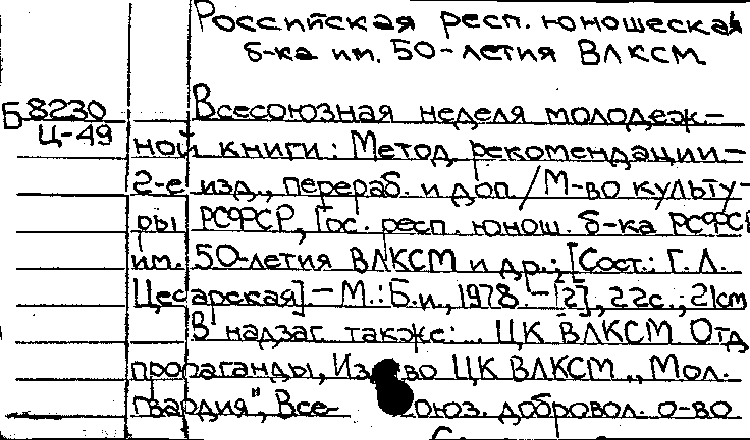 Российская респ. юношеская
б-ка им. 50-летия ВЛКСМ
Б 8230
Ц-49
Всесоюзная неделя молодеж-
ной книги: Метод рекомендации-
2-е изд., перераб. и доп/М-во культу-
ры РСФСР, Гос. респ. юнош. б-ка РСФСР
им. 50-летия ВЛКСМ и др.; [Сост.: Г.Л.
Цесарская].-М.:Б.и., 1978.-[2], 22с.; 21см
В надзаг также: .. ЦК ВЛКСМ Отд
пропаганды, Из во ЦК ВЛКСМ „Мол.
гвардия", Все- союз. добровол. о-во